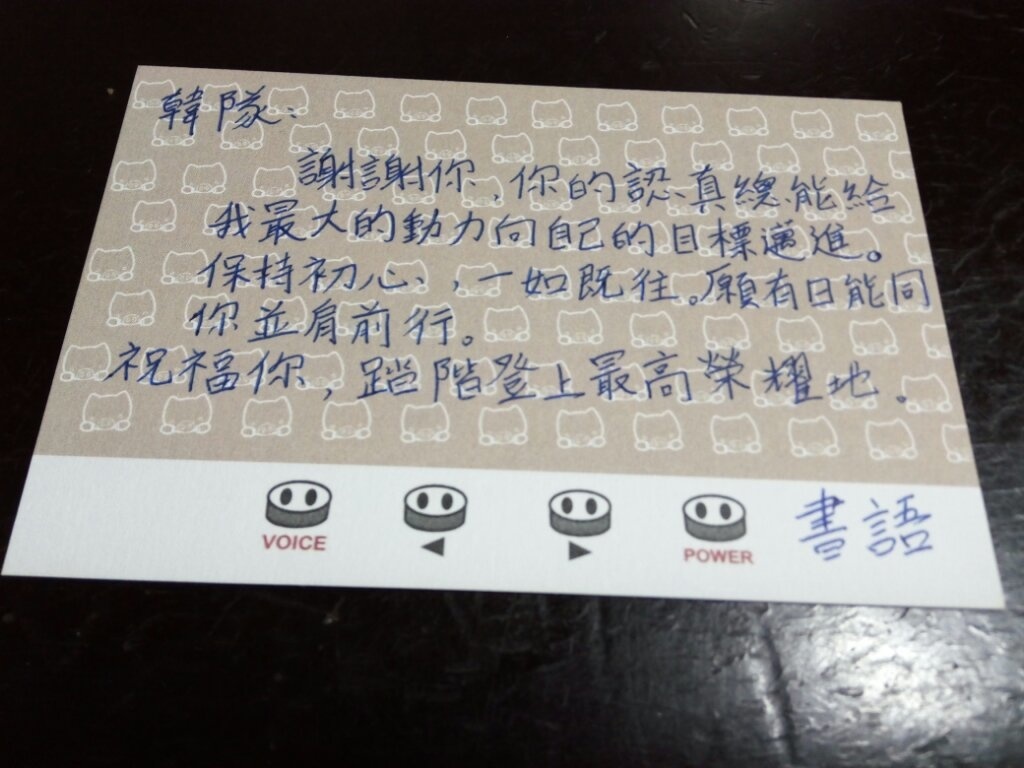 韓隊：
謝謝你，你的認真總能給
我最大的動力向自己的目標邁進。
保持初心，一如既往。願有日能同
你並肩前行。
祝福你，踏階登上最高榮耀地。
書語
VOICE
POWER